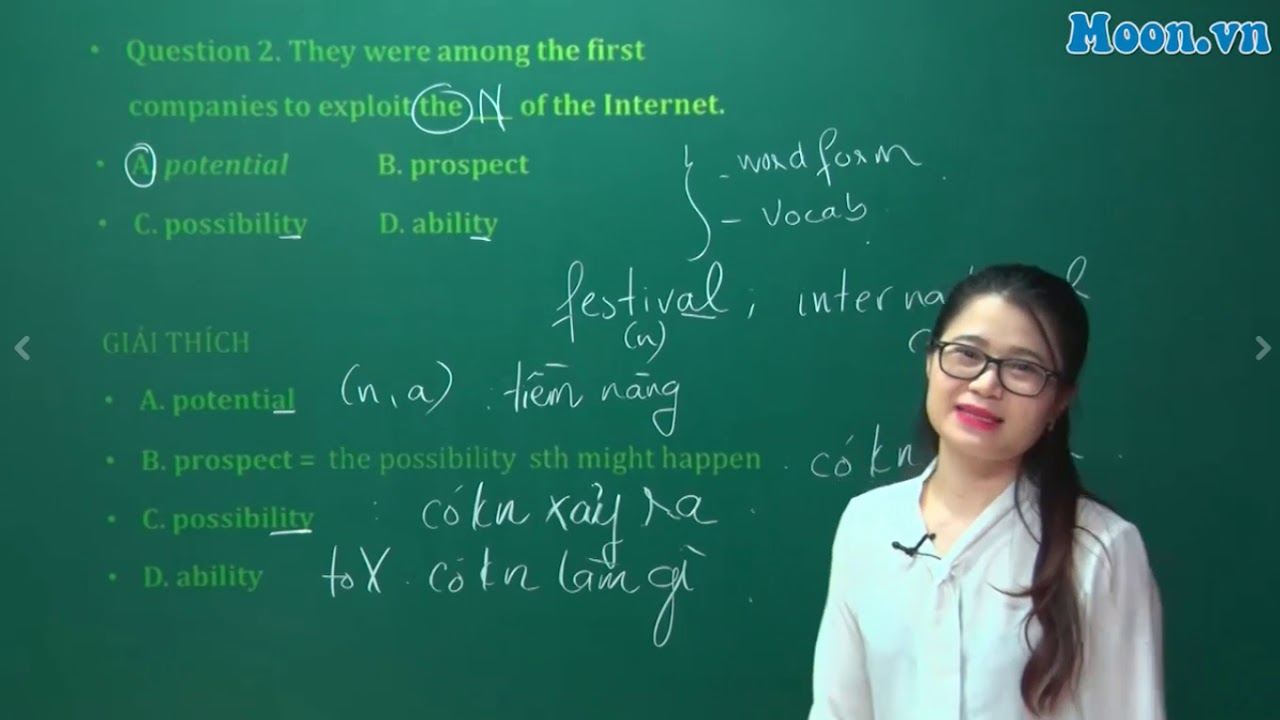 Moon.vn
• Question 2. They were among the first
companies to exploit the N of the Internet.
• A. potential B. prospect
• C. possibility D. ability
- word form
- vocab
festival ;
(n)
GIẢI THÍCH
• A. potential (n, a) : tiềm năng
• B. prospect = the possibility sth might happen . có kn
• C. possibility : có kn xảy ra .
• D. ability to V . có kn làm gì .